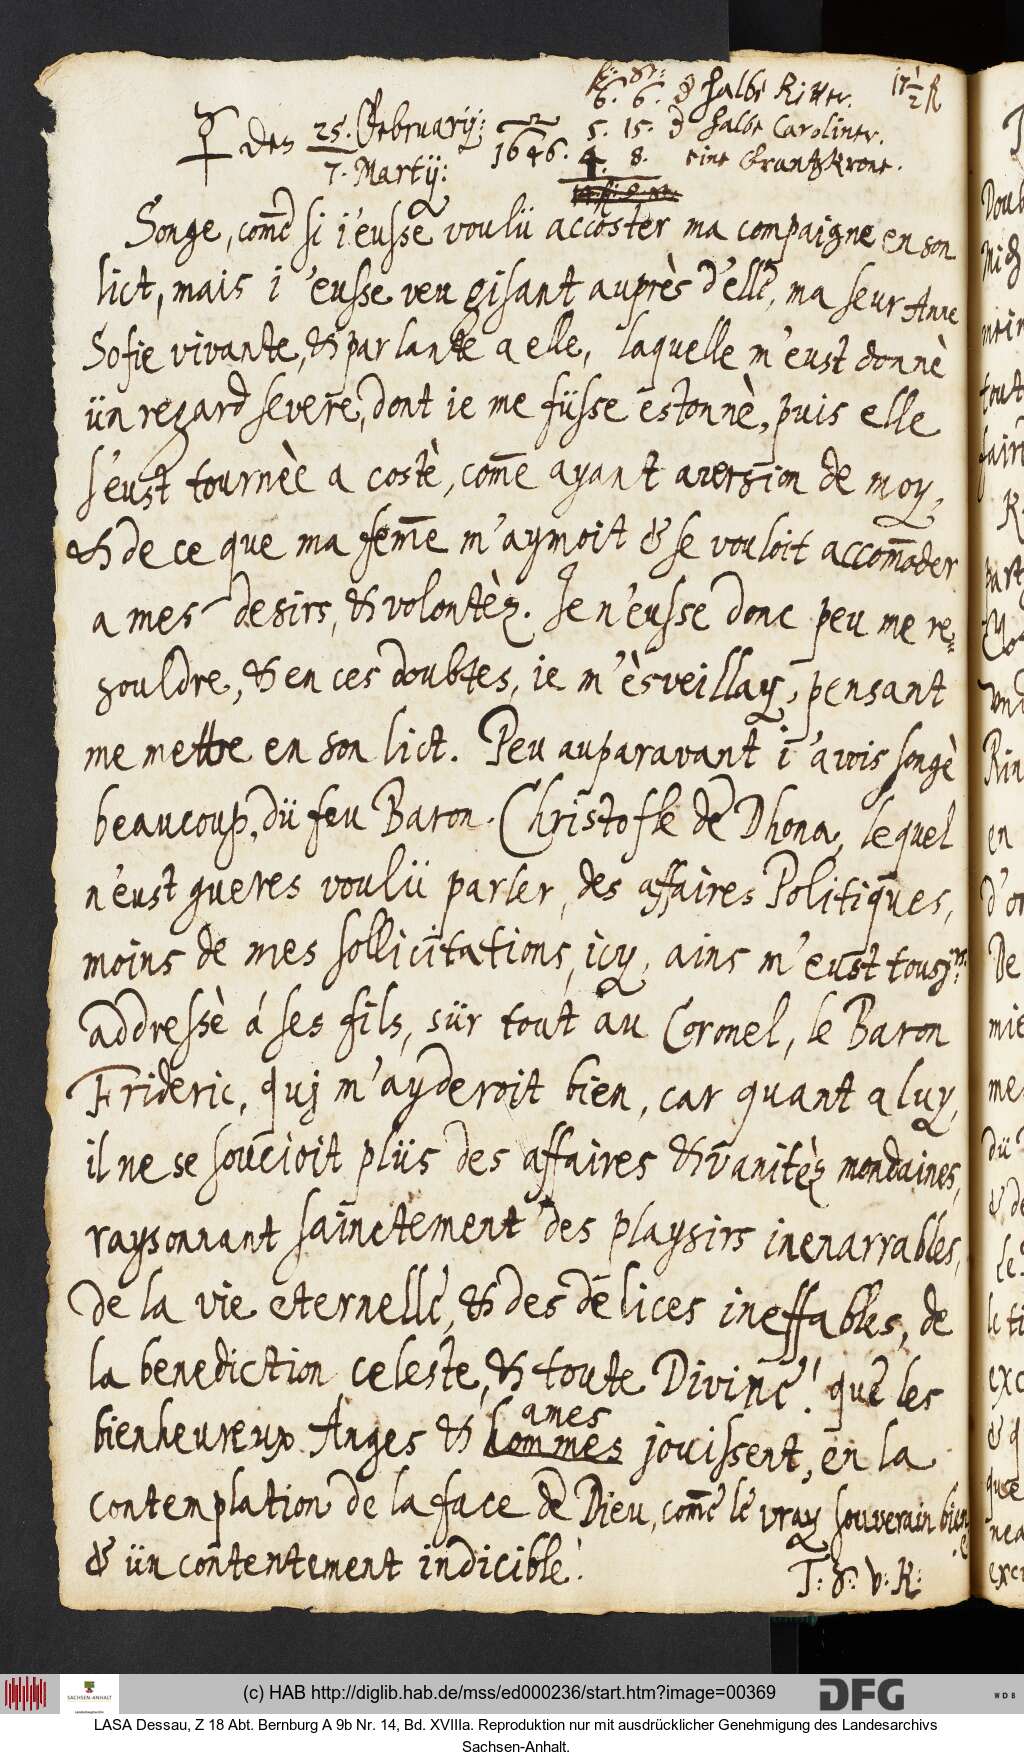 k: gr:
6. 6. 8 halbe Ritter. 17 1/2 R
♀ den 25. February: / 7. Martij: 1646. 5. 15. 3 halbe Caroliner.
4. 8. eine Frantzkrone.
Songe, com̄e si i'eusse voulü accoster ma compaigne en son
lict, mais i'eusse veu gisant auprès d'elle, ma seur Anne
Sofie vivante, & parlante a elle, laquelle m'eust donnè
ün regard severe, dont ie me füsse estonnè, puis elle
s'eust tournèe a costè, com̄e ayant aversion de moy,
& de ce que ma fem̄e m'aymoit & se vouloit accom̄oder
a mes desirs, & volontèz. Je n'eusse donc peu me re=
souldre, & en ces doubtes, ie m'èsveillay, pensant
me mettre en son lict. Peu auparavant i'avois songè
beaucoup, dü feu Baron Christofle de Dhona, lequel
n'eust gueres voulü parler, des affaires Politiques,
moins de mes sollicitations, icy, ains m'eust tousjrs.
addressè á ses fils, sür tout au Coronel, le Baron
Frideric, quj m'ayderoit bien, car quant a luy,
il ne se soucioit plüs des affaires & vanitèz mondaines,
raysonnant sainctement des playsirs inenarrables,
de la vie eternelle, & des délices ineffables, de
la benediction celeste, & toute Divine! que les
bienheureux Anges & hommes ames jouissent, en la
contemplation de la face de Dieu, com̄e le vray souverain bien,
& ün contentement indicible! 
T: G: V: R:
(c) HAB http://diglib.hab.de/mss/ed000236/start.htm?image=00369
SACHSEN-ANHALT
DFG
WDB
LASA Dessau, Z 18 Abt. Bernburg A 9b Nr. 14, Bd. XVIIIa. Reproduktion nur mit ausdrücklicher Genehmigung des Landesarchivs
Sachsen-Anhalt.